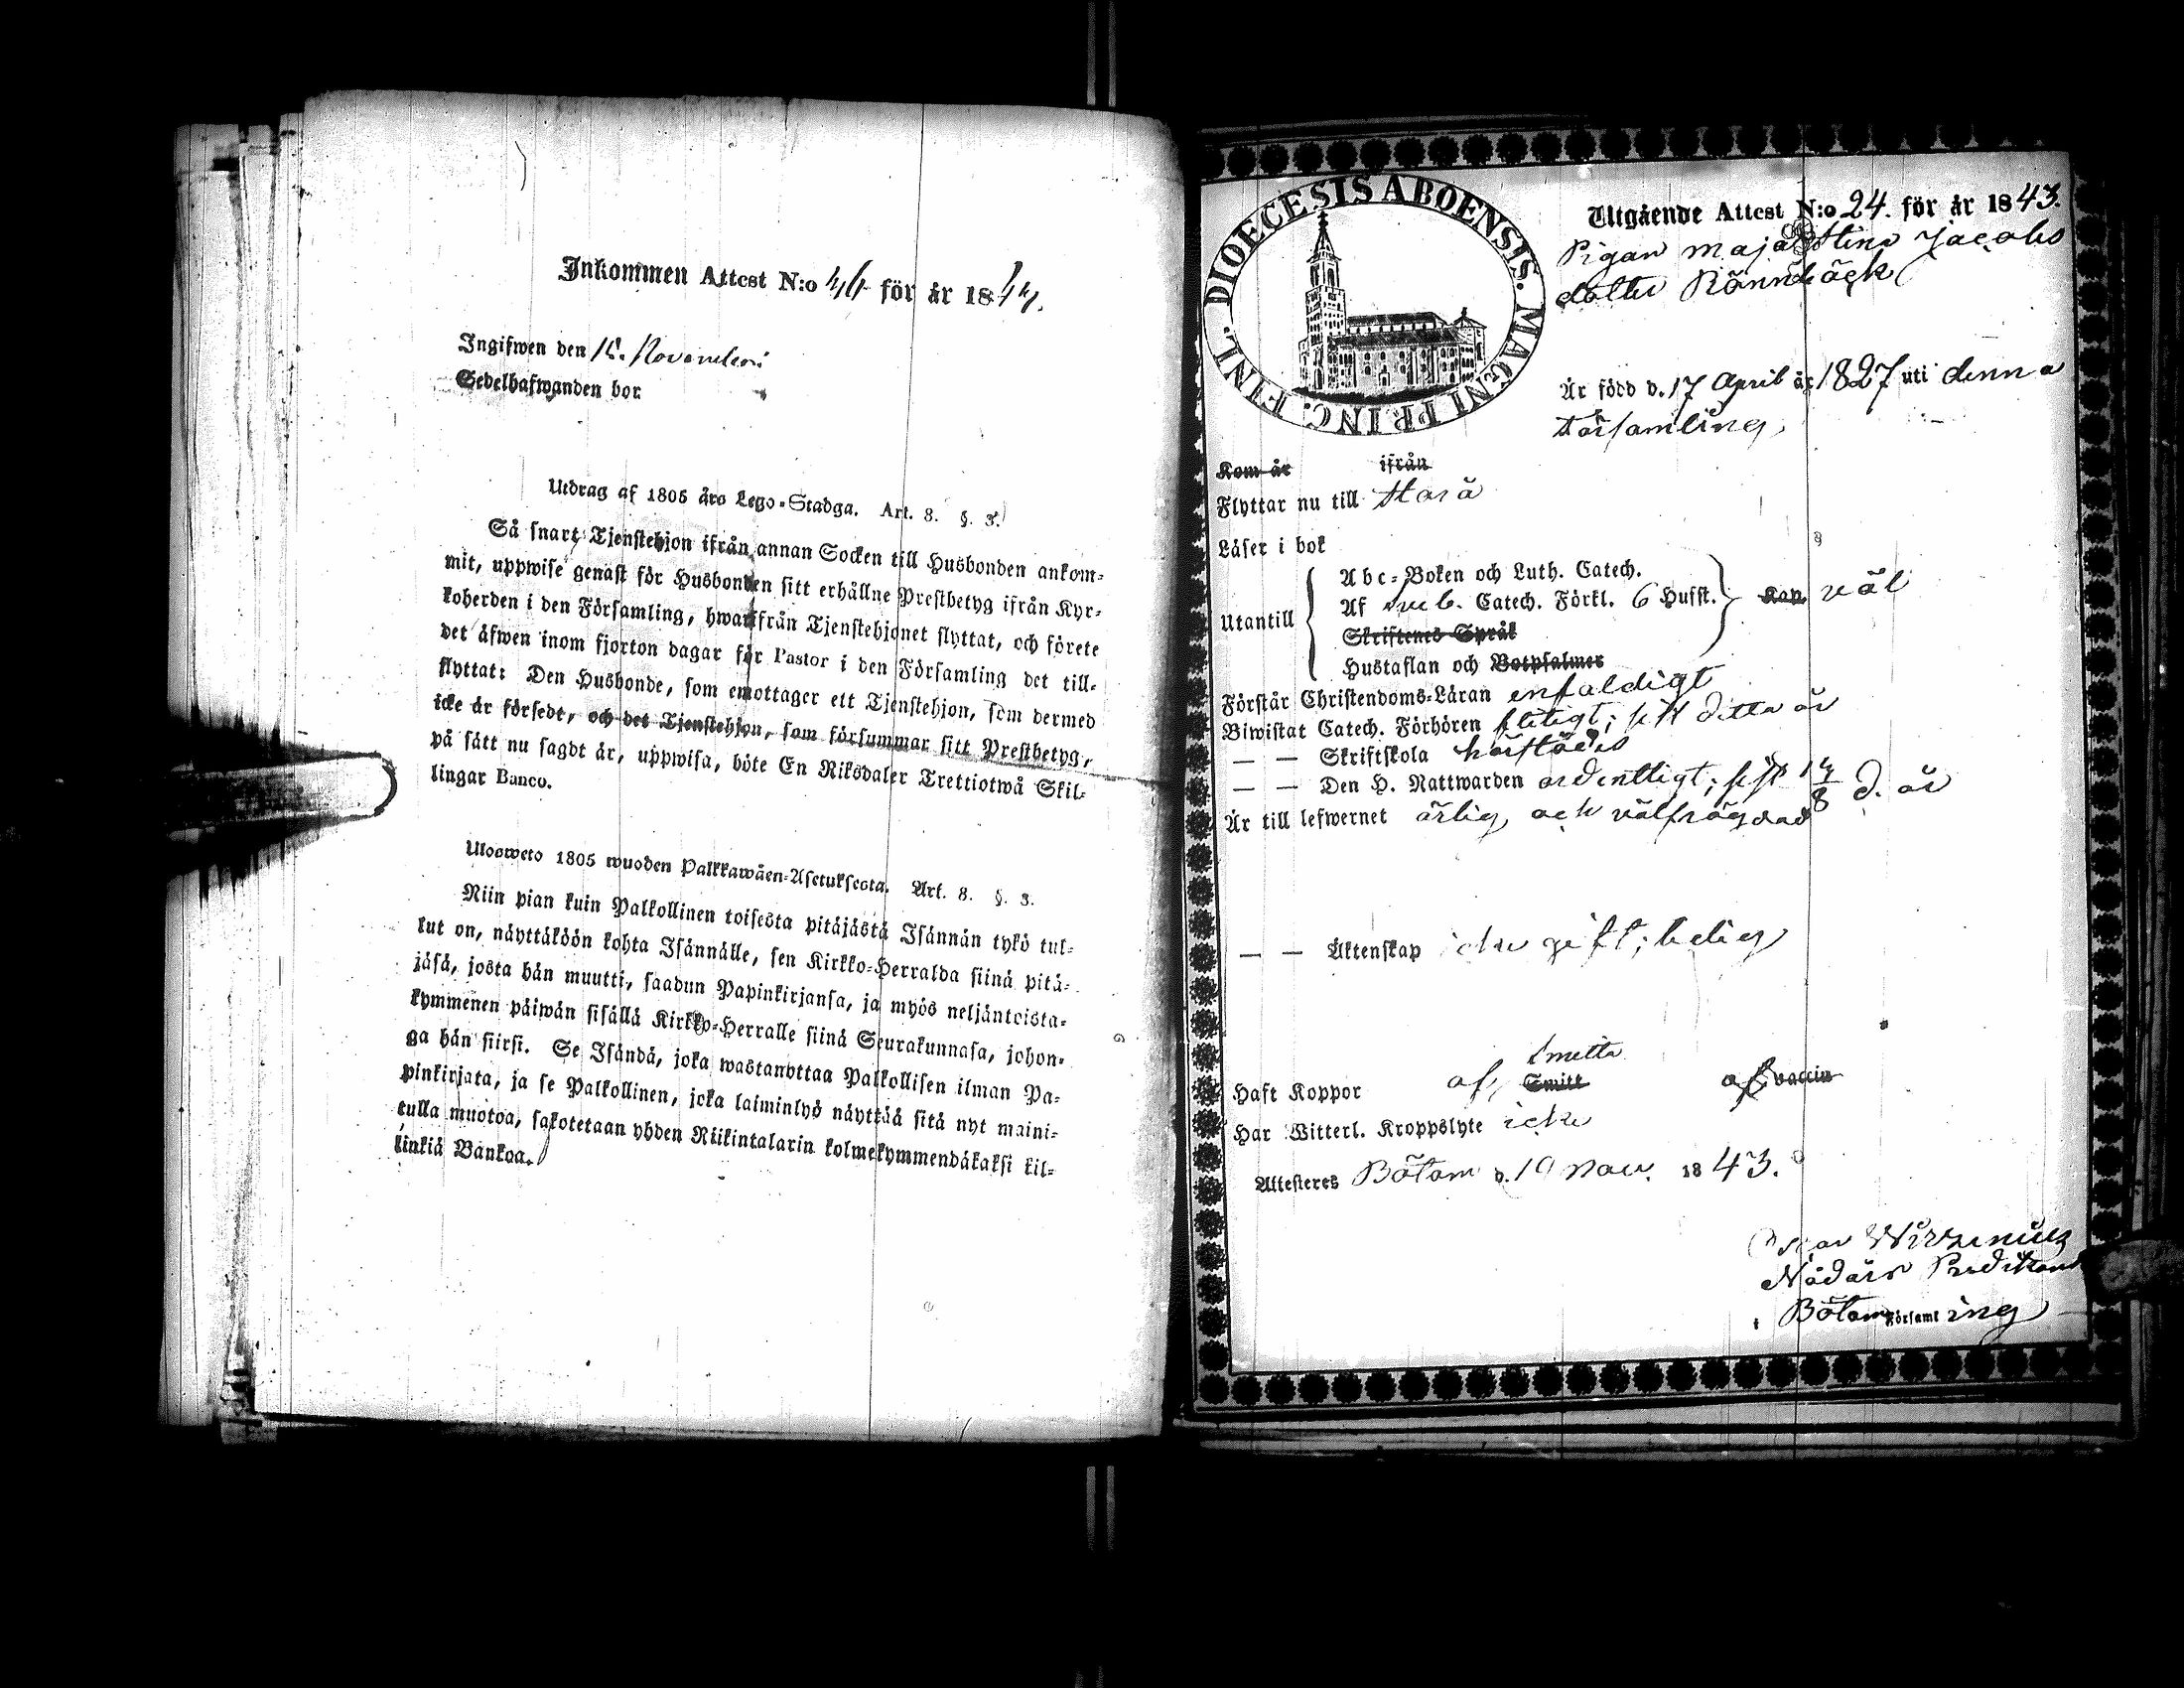 Inkommen Attest N:o 46 för år 1843.
Ingifwen den 18. November
Sedelhafwanden bor
Utdrag af 1805 års Lego-Stadga. Art. 8. §. 3.
Så snart Tjenstehjon ifrån annan Socken till Husbonden ankom-
mit, uppwise genast för Husbonden sitt erhållne Prestbetyg ifrån Kyr-
koherden i den Församling, hwarifrån Tjenstehjonet flyttat, och förete
det äfwen inom fjorton dagar för Pastor i den Församling det till-
flyttat: Den Husbonde, som emottager ett Tjenstehjon, som dermed
icke är försedt, och det Tjenstehjon, som försummar sitt Prestbetyg,
på sätt nu sagdt är, uppwisa, böte En Riksdaler Trettiotwå Skil-
lingar Banco.
Ulosweto 1805 wuoden Palkkawäen-Asetuksesta. Art. 8. §. 3.
Niin pian kuin Palkollinen toisesta pitäjästä Isännän tykö tul-
lut on, näyttäköön kohta Isännälle, sen Kirkko-Herralda siinä pitä-
jäsä, josta hän muutti, saadun Papinkirjansa, ja myös neljäntoista-
kymmenen päiwän sisällä Kirkko-Herralle siinä Seurakunnasa, johon-
ga hän siirsi. Se Isändä, joka wastanottaa Palkollisen ilman Pa-
pinkirjata, ja se Palkollinen, joka laiminlyö näyttää sitä nyt maini-
tulla muotoa, sakotetaan yhden Riikintalarin kolmekymmendäkaksi kil-
linkiä Bankoa.
DIOECESIS ABOENSIS. MAGNI PRINC. FINL.
Utgående Attest N:o 24. för år 1843.
Pigan Maja Stina Jacobs
dotter Rönnbäck
Är född d. 17 April år 1827 uti denna
Församling,
Kom år ifrån
Flyttar nu till
Läser i bok
Abc-Boken och Luth. Catech.
Utantill Af Sveb. Catech. Förkl. 6 Hufst. Kan väl
Skriftenes Språk
Hustaflan och Botpsalmer
Förstår Christendoms-Läran enfaldigt
Biwistat Catech. Förhören flitigt; sist detta år
— — Skriftskola härstädes
— — Den H. Nattwarden ordentligt; sist d. år
Är till lefwernet ärlig och välfrägdad
— — Äktenskap icke gift; ledig
Smitta
Haft Koppor af Smitt af vaccin
Har Witterl. Kroppslyte icke
Attesteres Bötom d. 10 Nov. 1843.
Nådårs Predikant
i Bötom Församling